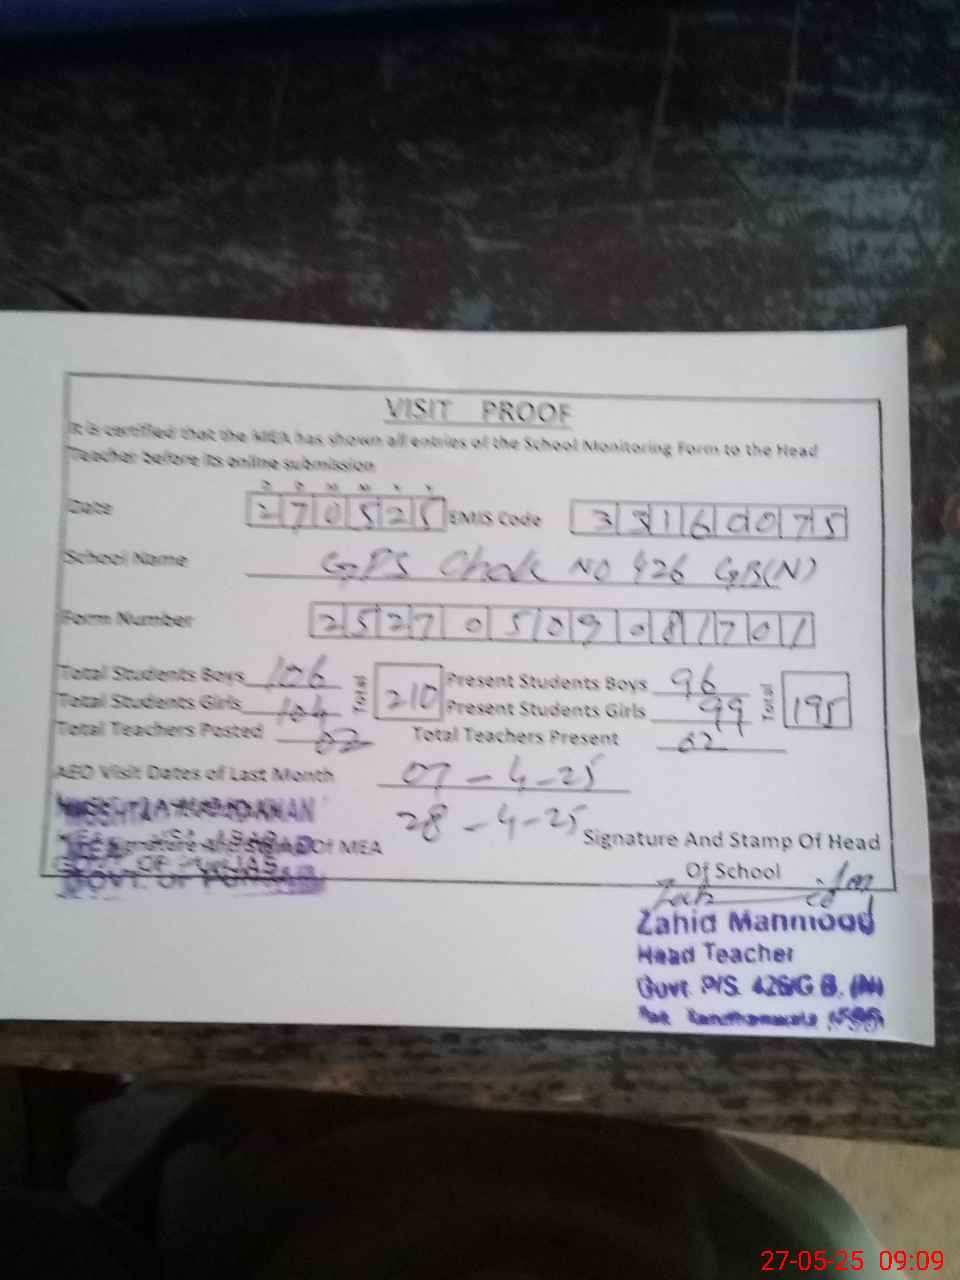 VISIT PROOF
It is certified that the MEA has shown all entries of the School Monitoring Form to the Head
Teacher before its online submission
D D M M Y Y
Date 270525 EMIS Code 33160075
School Name GPS Chak NO 426 GB(N)
Form Number 25270509081701
Total Students Boys 106 Total 210 Present Students Boys 96 Total 195
Total Students Girls 104 Present Students Girls 99
Total Teachers Posted 02 Total Teachers Present 02
AEO Visit Dates of Last Month 07-4-25
28-4-25
KHAN
Of MEA
Signature And Stamp Of Head
Of School
GOVT. OF PUNJAB
Zahid Mahmood
Head Teacher
Govt. P/S. 426/G.B. (N)
27-05-25 09:09